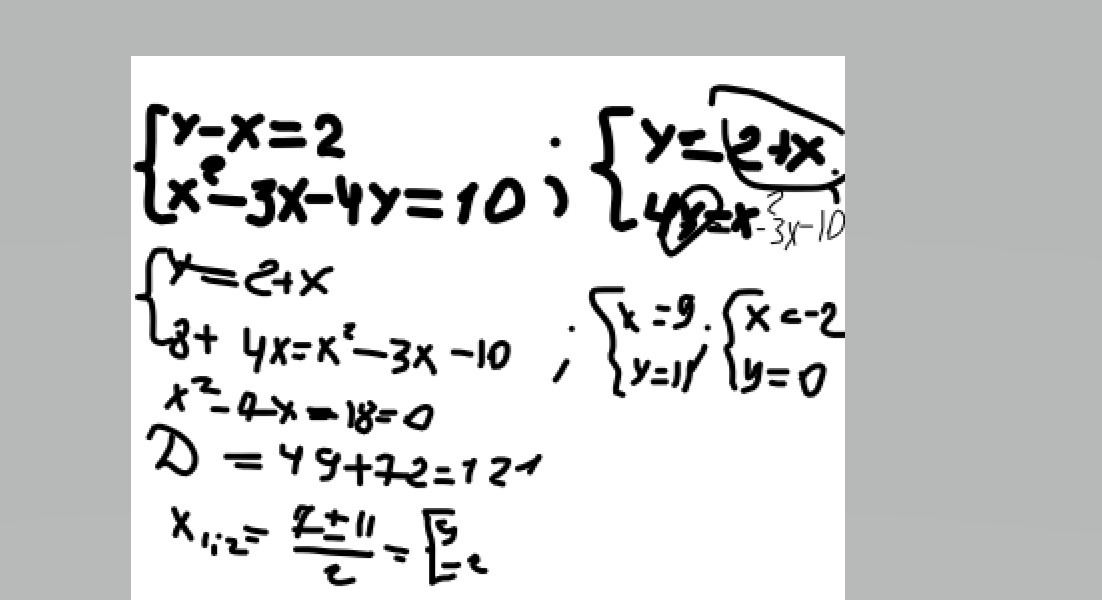 { y-x=2
x²-3x-4y=10 ;
{ y=2+x
4y=x²-3x-10
{ y=2+x
8+4x=x²-3x-10 ;
{ x=9
y=11 ;
{ x=-2
y=0
x²-7x-18=0
D=49+72=121
x₁;₂= (7±11)/2 = [9
-2